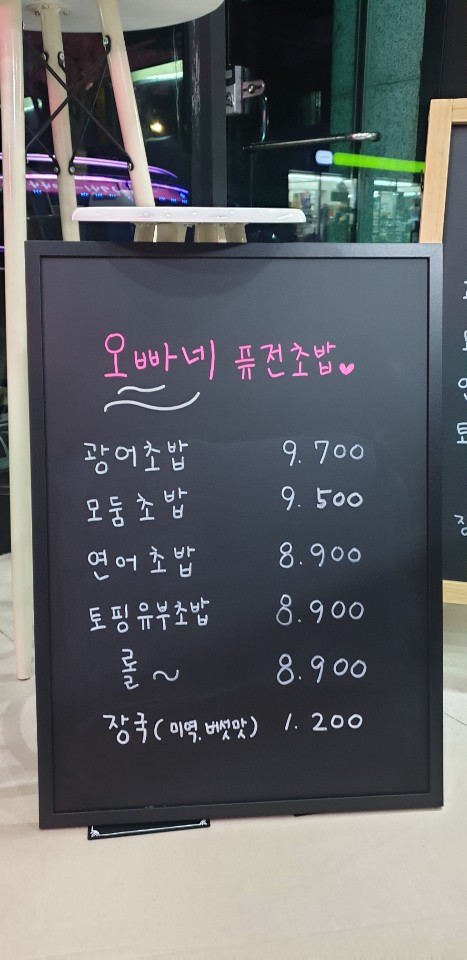 오빠네 퓨전초밥
광어초밥 9.700
모둠초밥 9.500
연어초밥 8.900
토핑유부초밥 8.900
롤~ 8.900
장국(미역.버섯맛) 1.200